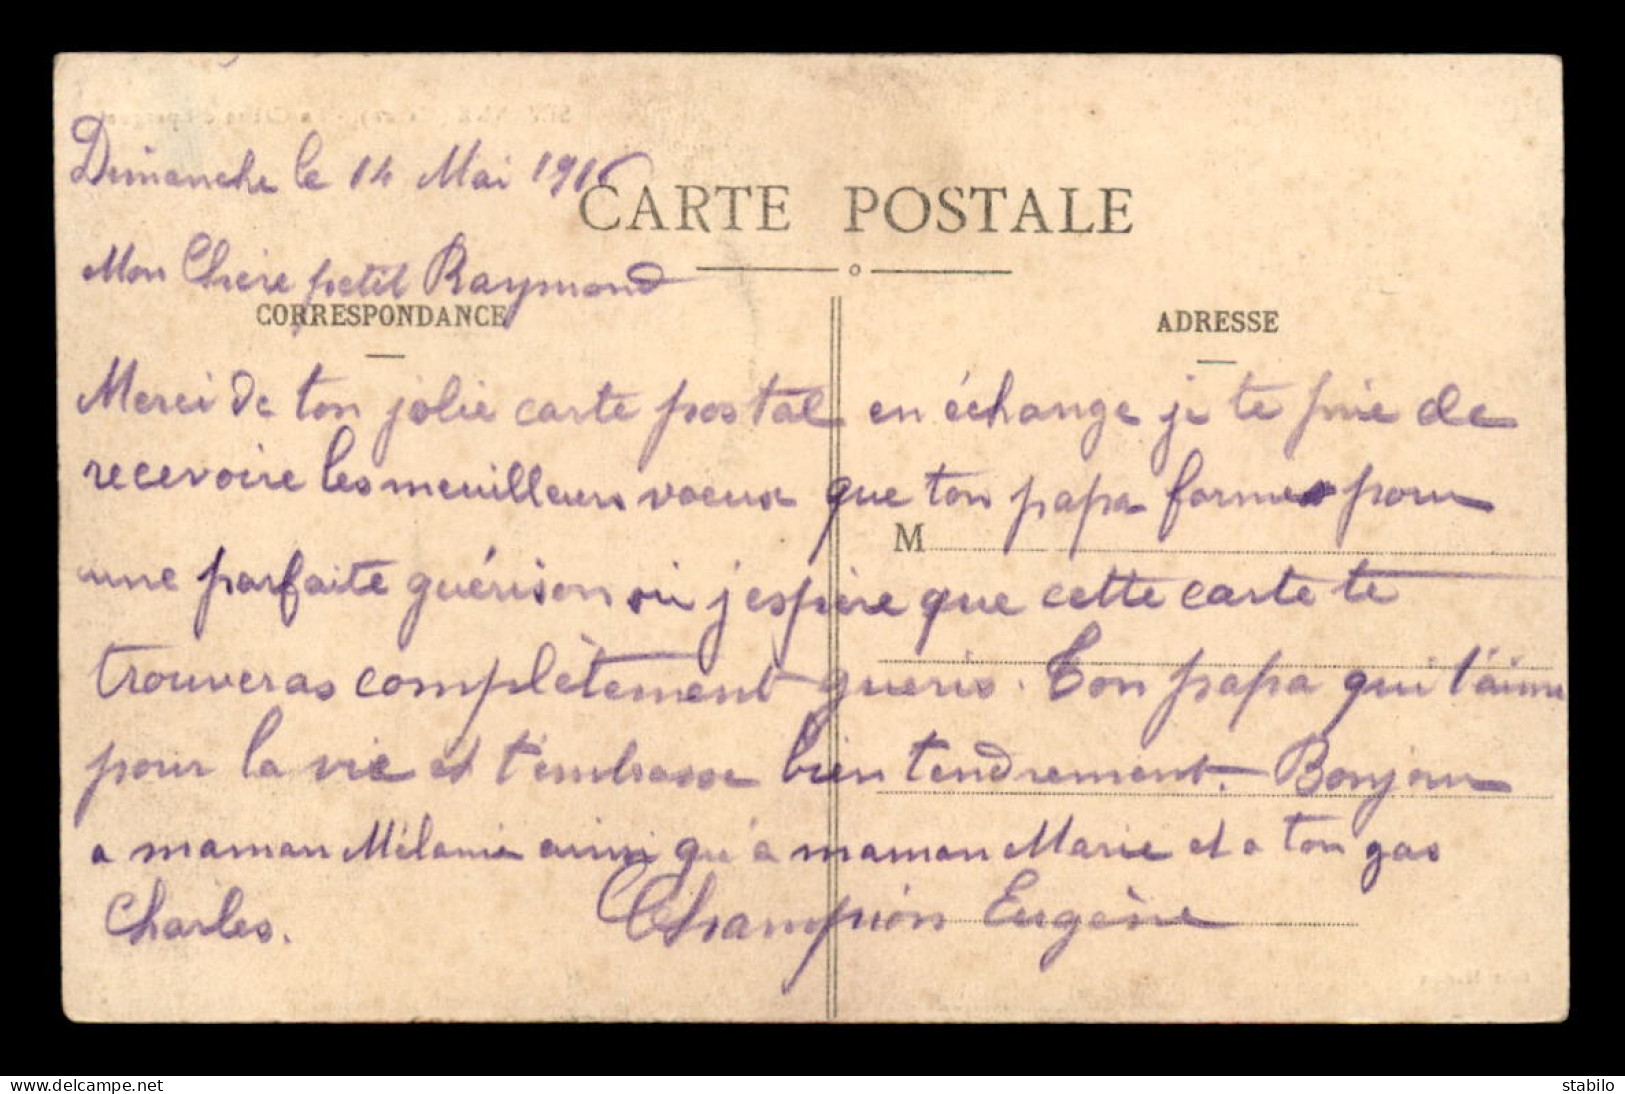 Dimanche le 14 Mai 1916
CARTE POSTALE
Mon Chère petit Raymond
CORRESPONDANCE
ADRESSE
Merci de ton jolie carte postal en échange je te prie de
recevoire les meuilleurs voeux que ton papa formes pour
une parfaite guérison où j'espère que cette carte te
M
trouveras complètement gueris. Ton papa qui t'aime
pour la vie et t'embrasse bien tendrement. Bonjour
a maman Mélanie ainsi qu'à maman Marie et a ton gas
Charles. Champion Eugène
www.delcampe.net
stabilo